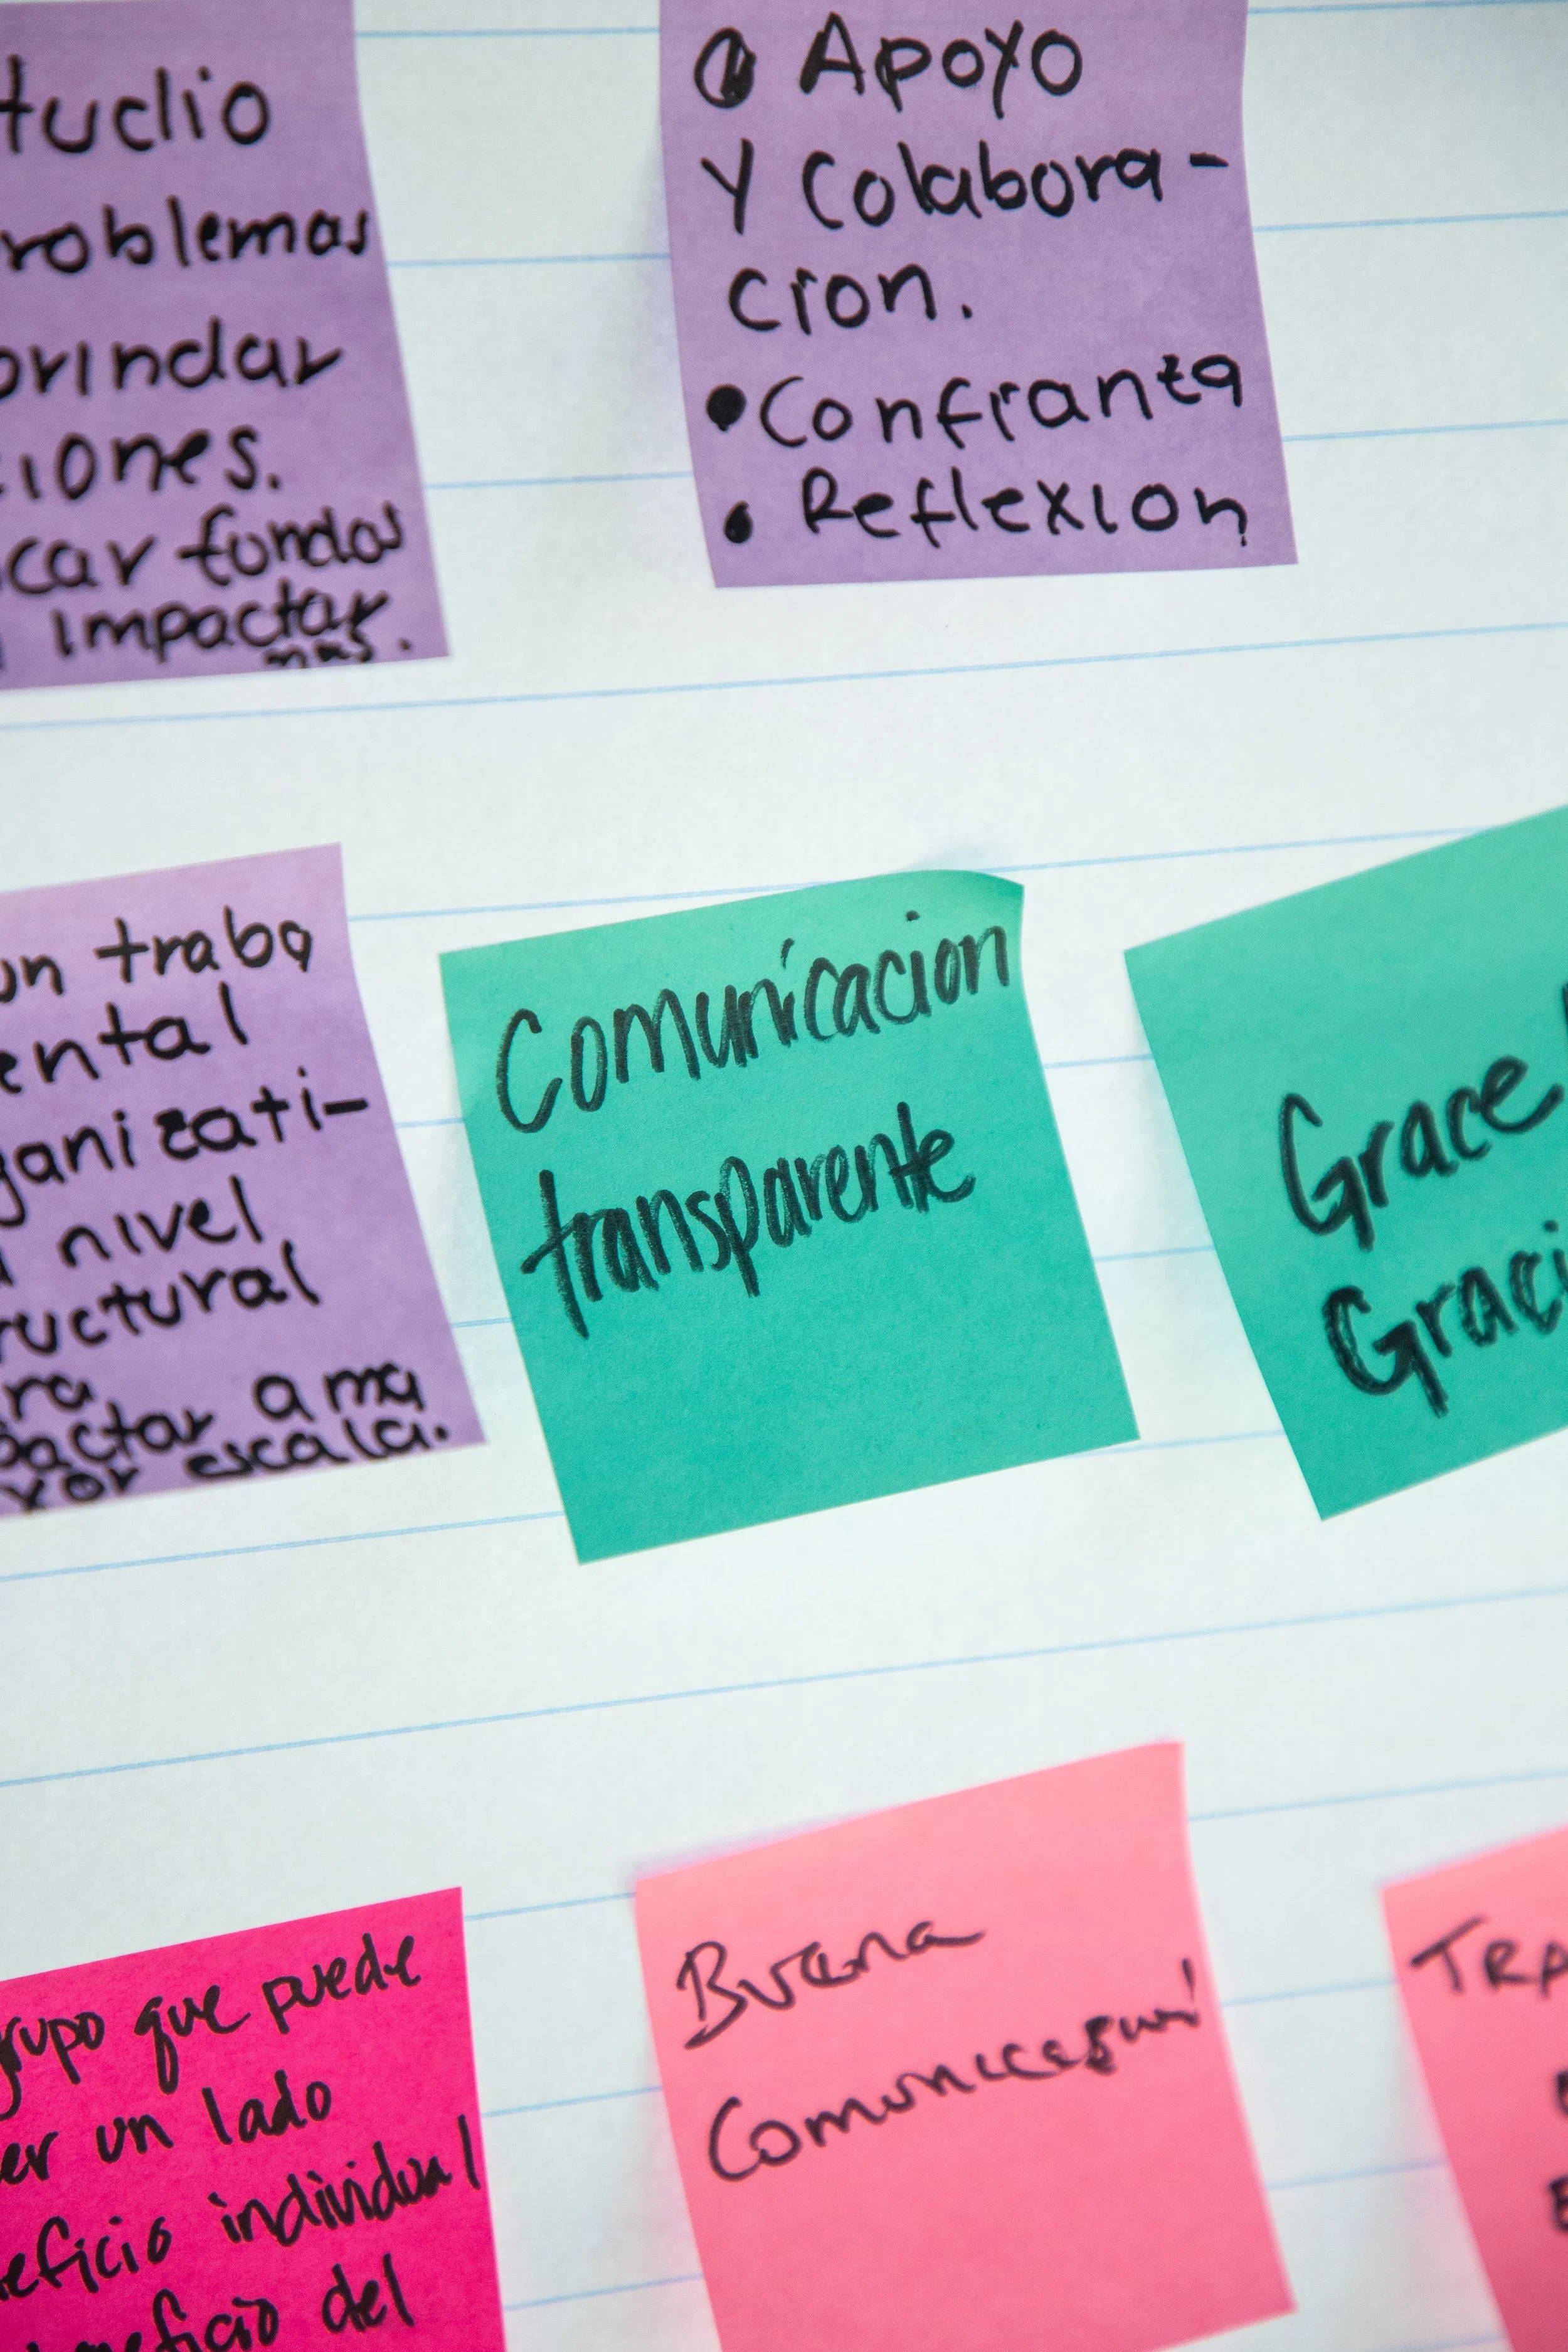 tudio
roblemas
brindar
ciones.
car fondos
impactar
mas.
Apoyo
Y Colabora-
cion.
Confianza
Reflexion
un traba
ental
ganizati-
a nivel
ructural
ra
pactar a ma
yor escala.
Comunicacion
transparente
Grace
Graci
grupo que puede
er un lado
eficio individual
neficio del
Buena
TRA